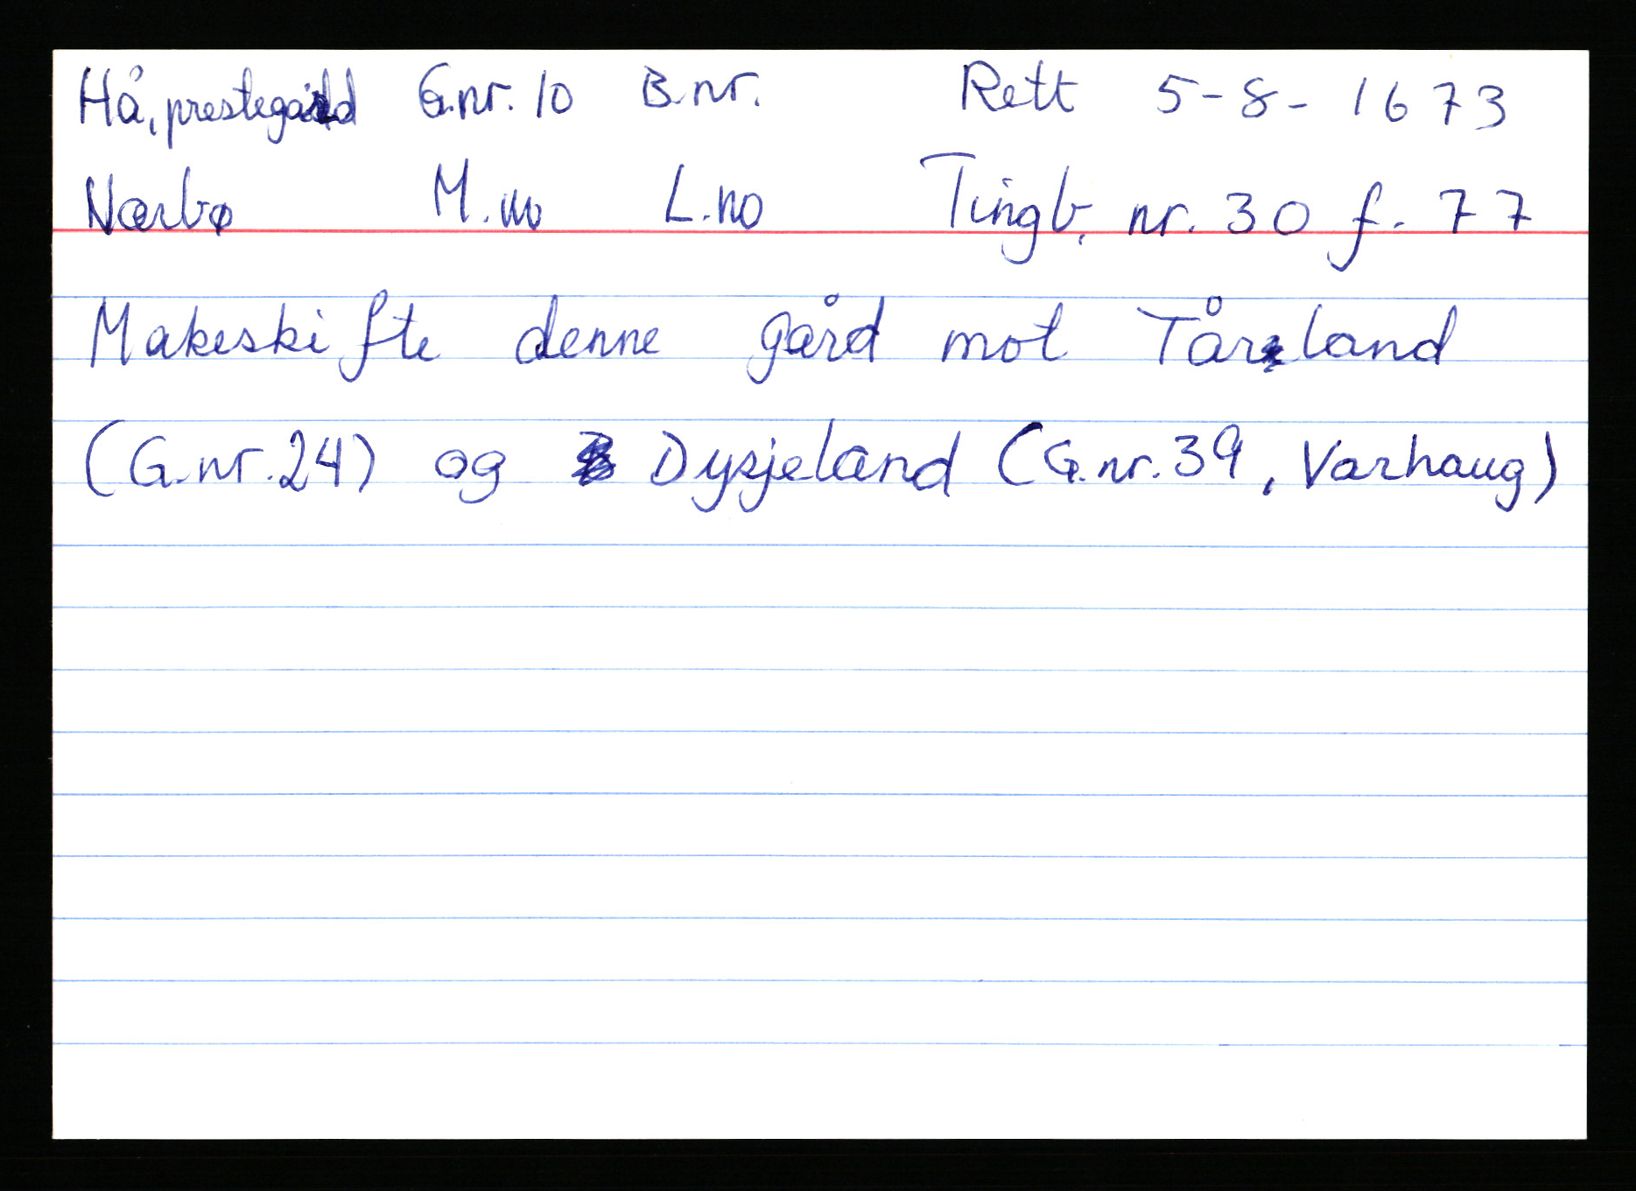 Hå, prestegård G.nr. 10 B.nr. Rett 5-8-1673
Nærbø M.no L.no Tingb. nr. 30 f. 77
Makeskifte denne gård mot Tårland
(G.nr. 24) og Dysjeland (G.nr. 39, Varhaug)